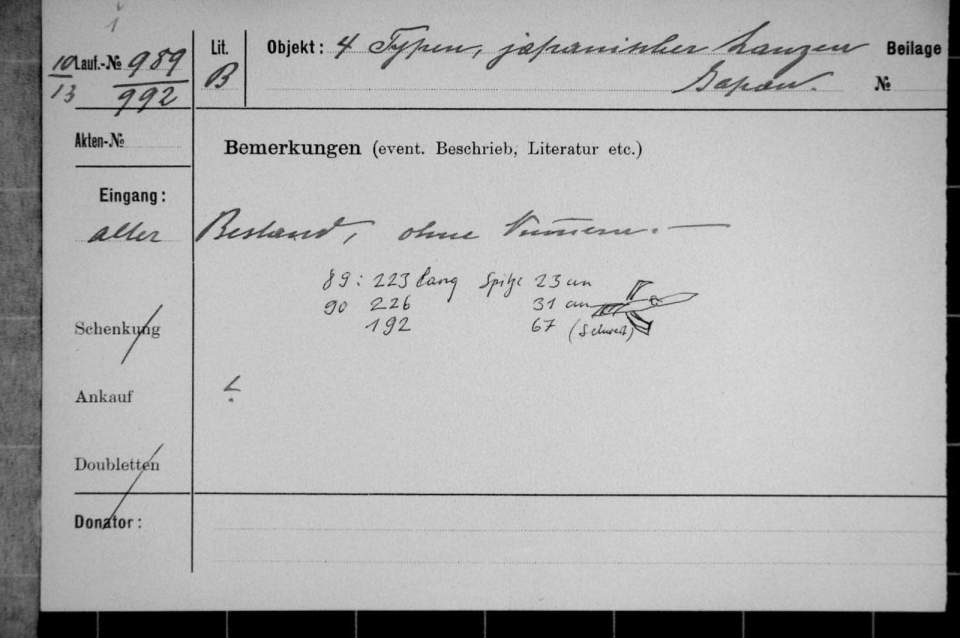 Lauf.-№ 989
10/13 992
Lit.
B
Objekt: 4 Typen, japanischer Lanzen
Japan.
Beilage
№
Akten-№
Bemerkungen (event. Beschrieb, Literatur etc.)
Eingang:
alter Bestand, ohne Num̅ern. —
89: 223 lang Spitze 23 cm
90 226 31 cm
192 67 (Schwert)
Schenkung
Ankauf
Doubletten
Donator: